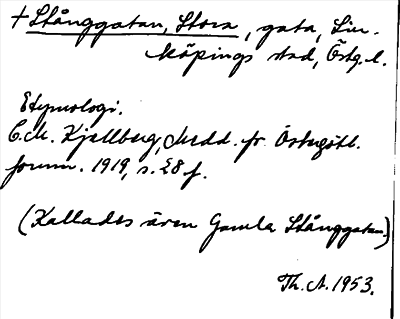 + Stånggatan, Stora, gata, Lin-
köpings stad, Östg. l.
Etymologi.
C.M. Kjellberg, Medd. fr. Östergötl.
fornm. 1919, s. 28 f.
(Kallades även Gamla Stånggatan.)
Th. A. 1953.